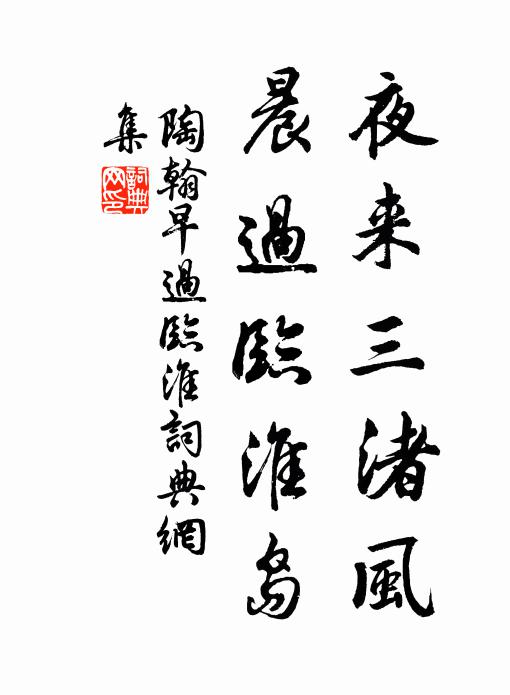 夜来三渚風
晨過臨淮島
陶翰早過臨淮詞典網
集
詞典
网印